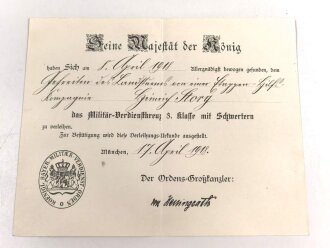 Seine Majestät der König
haben Sich am 5. April 1918 Allergnädigst bewogen gefunden, dem
Gefreiten des Landsturms von einer Etappen-Hilfs-
kompagnie Heinrich Storg
das Militär-Verdienstkreuz 3. Klasse mit Schwertern
zu verleihen.
Zur Bestätigung wird diese Verleihungs-Urkunde ausgestellt.
München, 17 April 1918.
Der Ordens-Großkanzler: